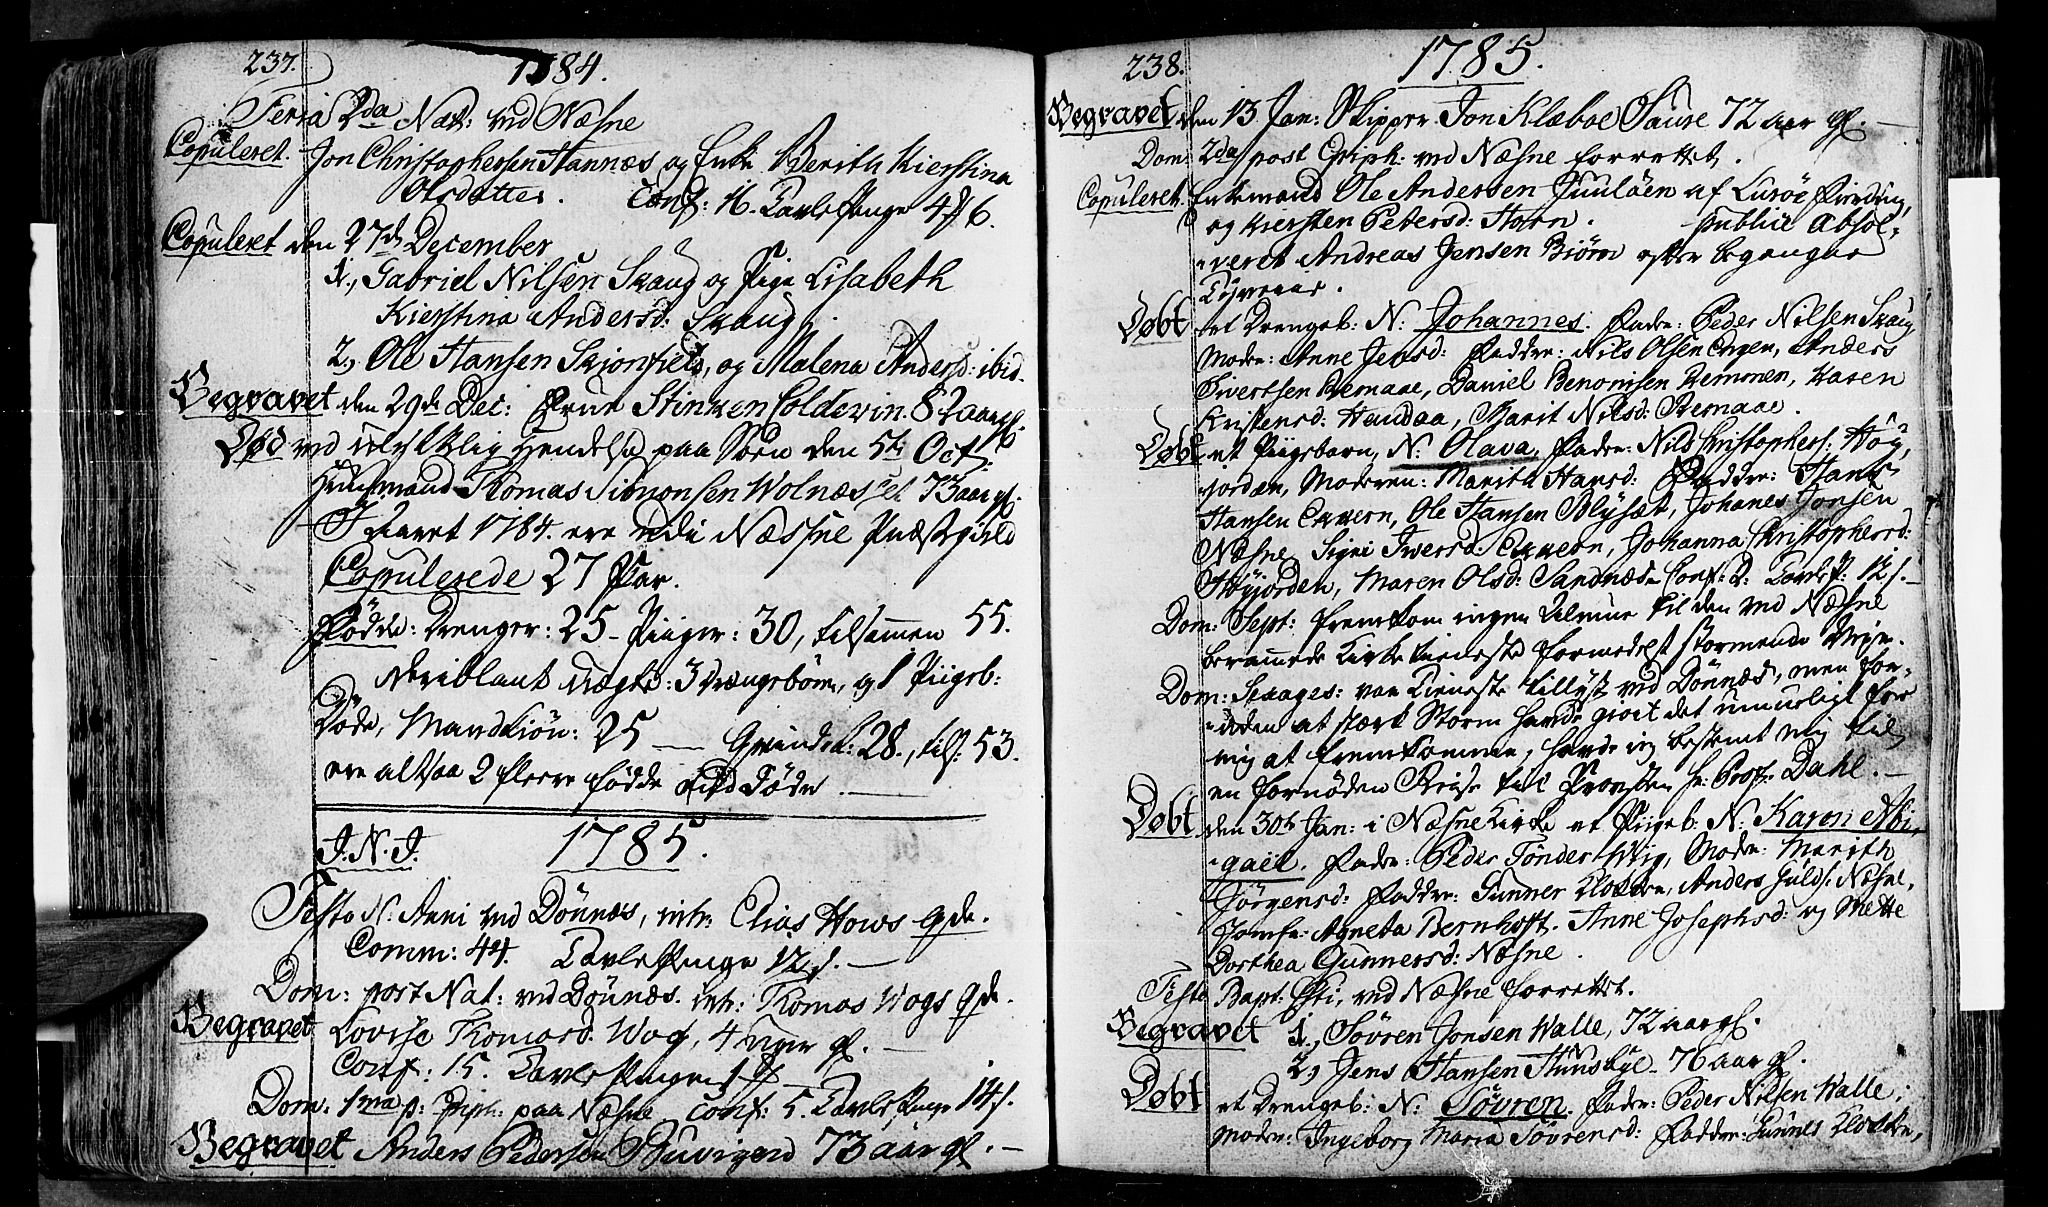 237. 1784.
Feria 2da Nat: ved Næsne
Copuleret. Jon Christophersen Hannæs og Enke Berith Kierstina
Olsdatter. Conf: 16. Tavle Penge 4 6.
Copuleret den 27d December
1., Gabriel Nilsen Skaug og Pige Lisabeth
Kierstina Andersd: Skaug.
2., Ole Hansen Skionfield, og Malena Andersd: ibid.
Begravet den 29de Dec: Frue Stinken Coldevin. 82 aar gl.
Død ved ulyklig Hendelse paa Søen den 5te Oct:
Huusmand Thomas Simonsen Wolnæs 73 aar gl.
I Aaret 1784. ere udi Næsne Præstegield
Copulerede 27 Par.
Fødde: Drenger: 25 - Piiger: 30, tilsamen 55.
deriblant Uægte: 3 drængebørn, og 1 Piigeb:
Døde, Mandkiøn: 25 — Qvindek: 28., tils: 53.
ere altsaa 2 fleere fødde end døde. —
J. N. J. 1785.
Festo N: Anni ved Dönnæs, intr: Elias Hows qde.
Comm: 44. Tavle Penge 12 s. —
Dom: post Nat: ved Dönnæs. intr: Thomas Wogs qde.
Begravet Lovise Thomasd: Wog, 4 Uger gl. —
Conf: 15. Tavle Penge
Dom: 1ma p: Epiph: paa Næsne conf: 5. Tavle Penge 14 s.
Begravet Anders Pedersen 73 aar gl. —
238. 1785.
Begravet den 13 Jan: Skipper Jon Klæboe Saure 72 aar gl. —
Dom: 2da post Epiph: ved Næsne forrettet.
Copuleret. Enkemand Ole Andersen Juuløen af Lurøe Fierding,
og Kiersten Petersd: Horn. publice Absol-
-veret Andreas Jensen Biörn efter begangne
Tyverie.
Døbt et Drengeb: N: Johannes. Fader: Peder Nilsen Skaug
Moder: Anne Jensd: Fadder: Nils Olsen Engen, Anders
Iwertsen Remaae, Daniel Benonisen Remonen, Karen
Kristensd: Handaa, Marit Nilsd: Remaae.
Døbt et Piigebarn, N: Olava. Fader: Nils Christophers: Höy-
-jorden, Moderen: Marith Hansd: Fadder: Hans
Hansen Exvern, Ole Hansen Blysæt, Johanes Jonsen
Næsne, Signi Iwersd: Exvern, Johanna Christophersd:
Höyjorden, Maren Olsd: Sandnæs. Conf: 2. Tavle P: 12 s. —
Dom: Sept: fremkom ingen Almue til den ved Næsne
beramede Kirke tieneste formedelst stormende Veyr.
Dom: Sexages: var Tieneste tillyst ved Dönnæs, men for-
-uden at stærk Storm havde giort det umueligt for
mig at fremkomme, havde ieg bestemt mig til
en fornöden Reise til Provsten Hr: Prof: Dahl. —
Døbt den 30te Jan: i Næsne Kirke et Piigeb: N: Karen Abi-
-gaël. Fader: Peder Tönder Wiig, Moder: Marith
Jörgensd: Fadder: Gunner Klokker, Anders Juls: Næsne,
Jomfr: Agneta Bernhoft. Anne Josephsd: og Mette
Dorthea Gunnersd: Næsne.
Festo Bapt: Xsti, ved Næsne forrettet.
Begravet 1., Sövren Jonsen Walle, 72 aar gl.
2, Jens Hansen Huusbye 76 aar gl.
Døbt et Drengeb: N: Sövren. Fader: Peder Nilsen Walle;
Moder: Ingeborg Maria Sövrensd: Fadder: Gunner Klokker,